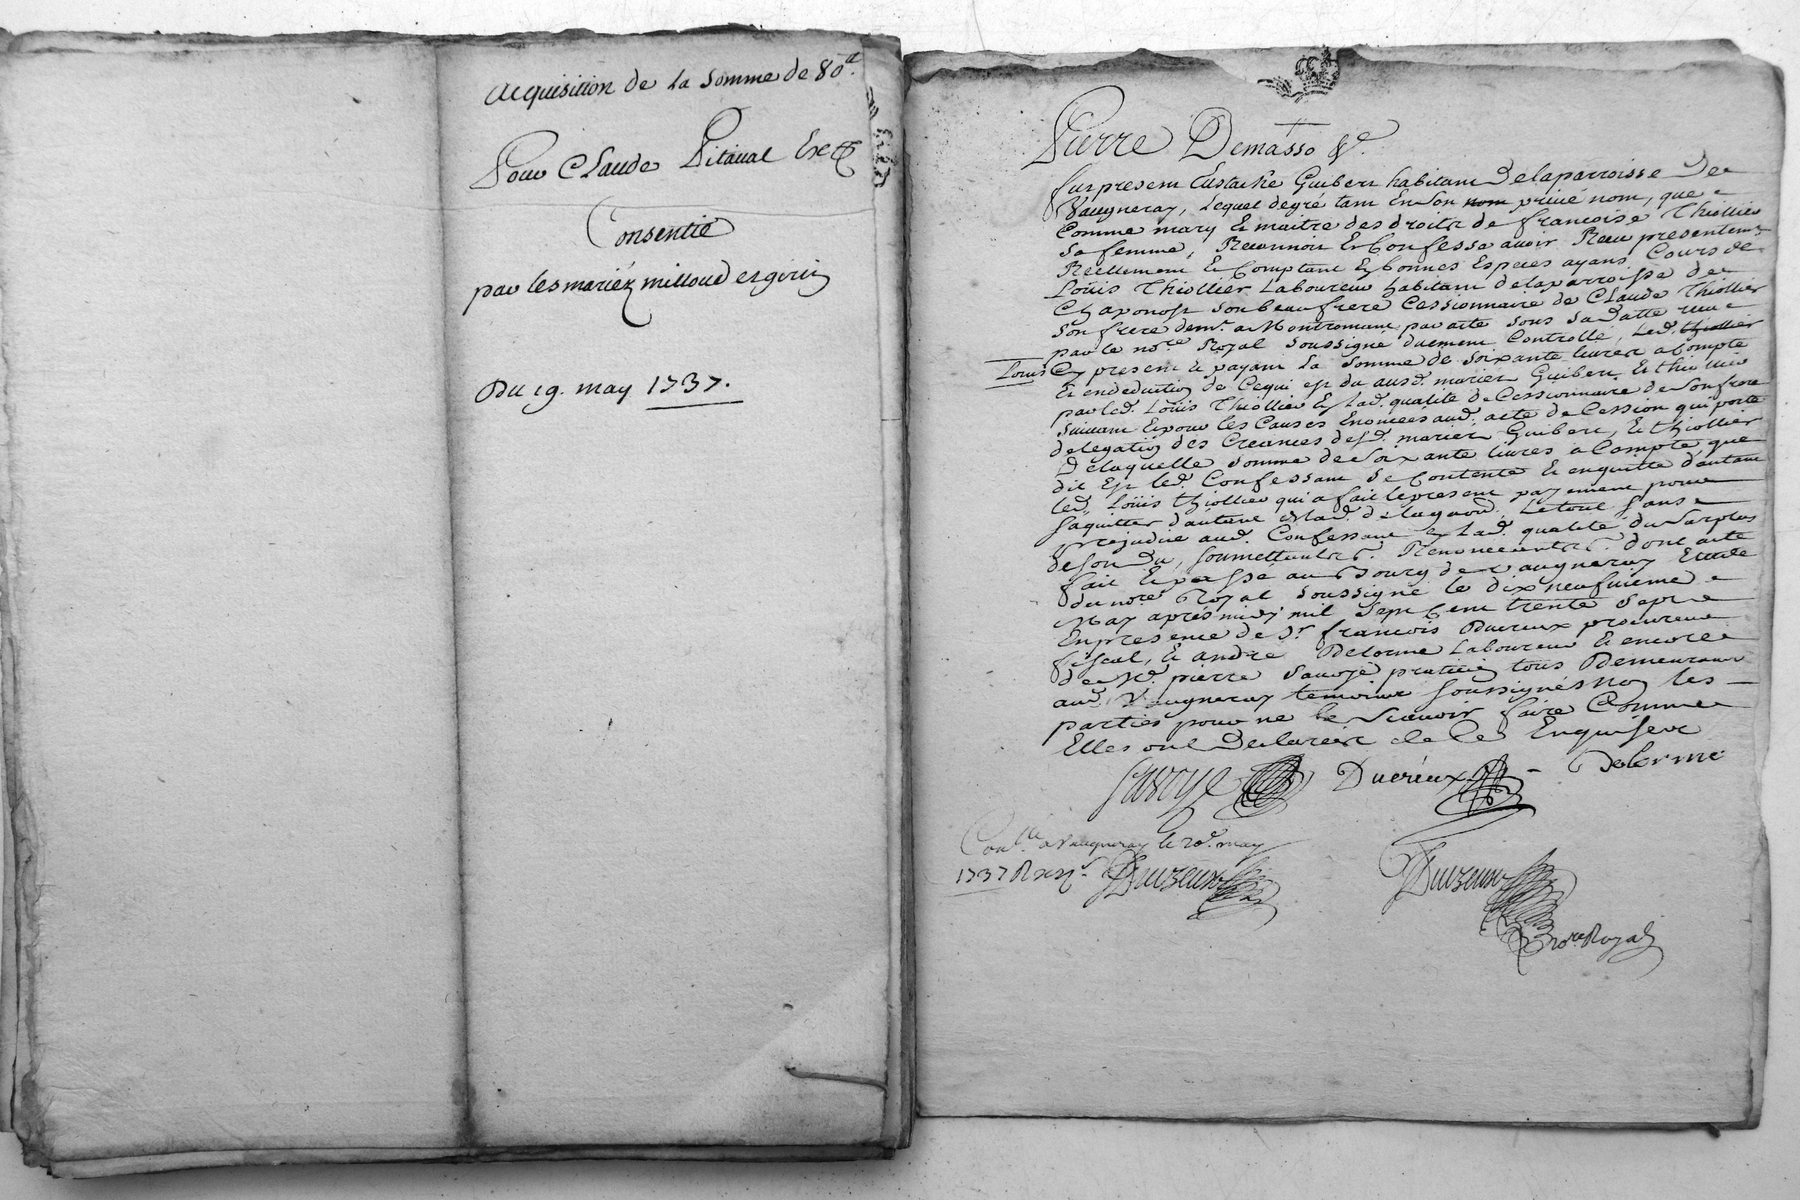 acquisition de la somme de 80ᵗᵗ.
Pour Claude Pitaval
Consentie
par les mariéz milloud et
Du 19. may 1737.
Pierre Demasso &ᵃ.
fut present Eustache Guibert habitant De la parroisse De
Vaugneray, Lequel de gré tant En son nom privé nom, que
Comme mary Et maitre des droits de francoise Thiollier
sa femme, Reconnoit Et Confesse avoir Receu presentemᵗ
Reellement Et Comptant En bonnes Especes ayans Cours de
Loüis Thiollier Laboureur habitant de la parroisse de
Chaponost son beaufrere Cessionnaire de Claude Thiollier
son frere demᵗ. a Montromant par acte sous sa Datte receu
par le noʳᵉ Royal soussigné duement Controllé, Led. thiollier
Louis
Cy present Et payant La somme de soixante livres a Compte
Et en deduction de Ce qui est du ausd. mariéz Guibert Et thiollier
par led. Loüis Thiollier En lad. qualité de Cessionnaire de son frere
suivant Et pour les Causes Enoncées aud. acte de Cession qui porte
delegation des Creances desd. mariéz Guibert, Et thiollier
De laquelle somme de soixante livres a Compte que
dit Est led. Confessant se Contente Et en quitte d'autant
led. Loüis thiollier qui a fait le present payement pour
saquitter d'autant de lad. delegaon. Le tout sans
prejudice aud. Confessant En lad. qualité du surplus
de son du, soumettants &. Renonceants &. dont acte
fait Et passé au Bourg de Vaugneray Etude
du noʳᵉ Royal soussigné le dix neufvieme
May aprés midy mil sept Cent trente sept
En presence de Sʳ. françois Ducreux procureur
fiscal, Et andré Delorme Laboureur Et encore
de Mᵉ. pierre Savoye praticien tous Demeurant
aud. Vaugneray temoins soussignés Non les
parties pour ne le sçavoir faire Comme
Elles ont Declaréés de Ce Enquises &
Savoye Ducreux Delorme
Conˡˡᵉ a Vaugneray le 20ᵉ. may
1737 Ducreux Ducreux
noʳᵉ Royal